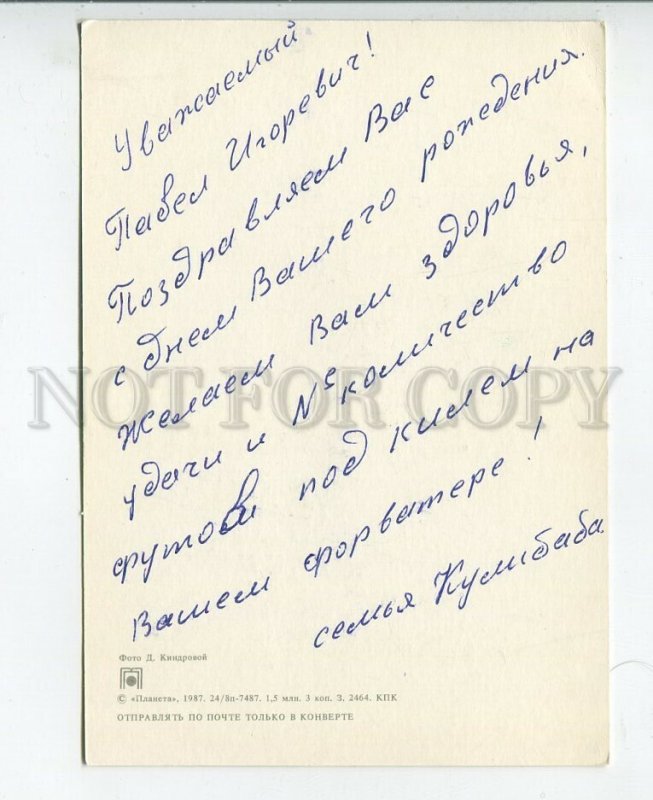 Уважаемый
Павел Игоревич!
Поздравляем Вас
с днем Вашего рождения.
Желаем Вам здоровья,
удачи и №е количество
футов под килем на
Вашем форватере!
семья Кулибаба
NOT FOR COPY
Фото Д. Киндровой
© «Планета», 1987. 24/8п-7487. 1,5 млн. 3 коп. З. 2464. КПК
ОТПРАВЛЯТЬ ПО ПОЧТЕ ТОЛЬКО В КОНВЕРТЕ